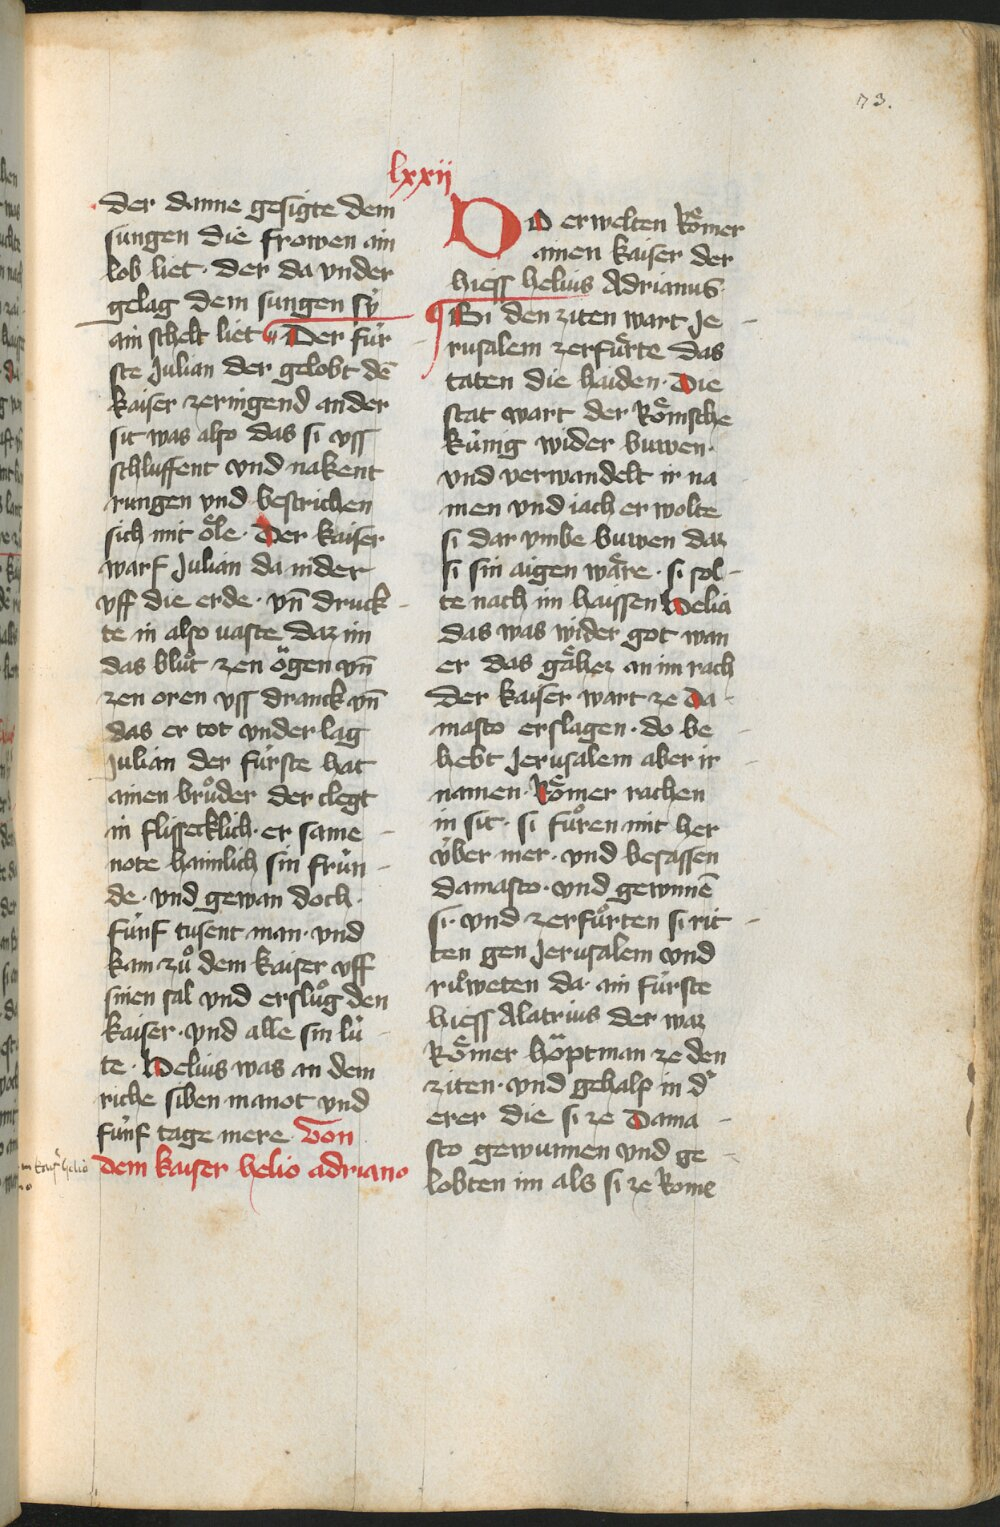 73.
lxxii
der danne gesigte dem
sungen die frowen ain
lob liet · der da vnder
gelag dem sungen sÿ
ain schelt liet Der fúr
ste Julian der gelobt dē
kaiser zeringend ander
sit was also das si vss
schluffent vnd nakent
rungen vnd bestrichen
sich mit oͤle · Der kaiser
warf Julian da nider
vff die erde · vn̄ druck -
te in also uaste daz im
das bluͦt zen oͤgen vn̄
zen oren vss dranck vn̄
das er tot vnder lag
Julian der fúrste hat
ainen bruͦder der clegt
in flissecklich · er same -
note haimlich sin frún -
de · vnd gewan doch ·
fúnf tusent man · vnd
kam zuͦ dem kaiser vff
sinen sal vnd ersluͦg den
kaiser · vnd alle sin lú -
te · Helius was an dem
riche siben manot vnd
fúnf tage mere Von
dem kaiser helio adriano
Do erwelten Roͤmer
ainen kaiser der
hiess helius Adrianus
Bi den ziten wart Je -
rusalem zerfuͤrte das
taten die haiden · Die
stat wart der Roͤmsche
kúnig wider buwen ·
vnd verwandelt ir na
men vnd iach er wolte
si dar vmbe buwen daz
si sin aigen waͤre · si sol -
te nach im haissen helia
das was wider got wan
er das gaͤhez an im rach
der kaiser wart ze Da -
masto erslagen · do be -
hebt Jerusalem aber ir -
namen · Roͤmer rachen
in sit · si fuͦren mit her
v́ber mer · vnd besassen
damasto · vnd gewunnē
si · vnd zerfuͦrten si rit -
ten gen Jerusalem vnd
da · ain fúrste
hiess Alatrius der waz
Roͤmer hoͤptman ze den
ziten · vnd gehalp in d'
erer die si ze Dama -
sto gewunnen vnd ge -
lobten im als si ze Rome